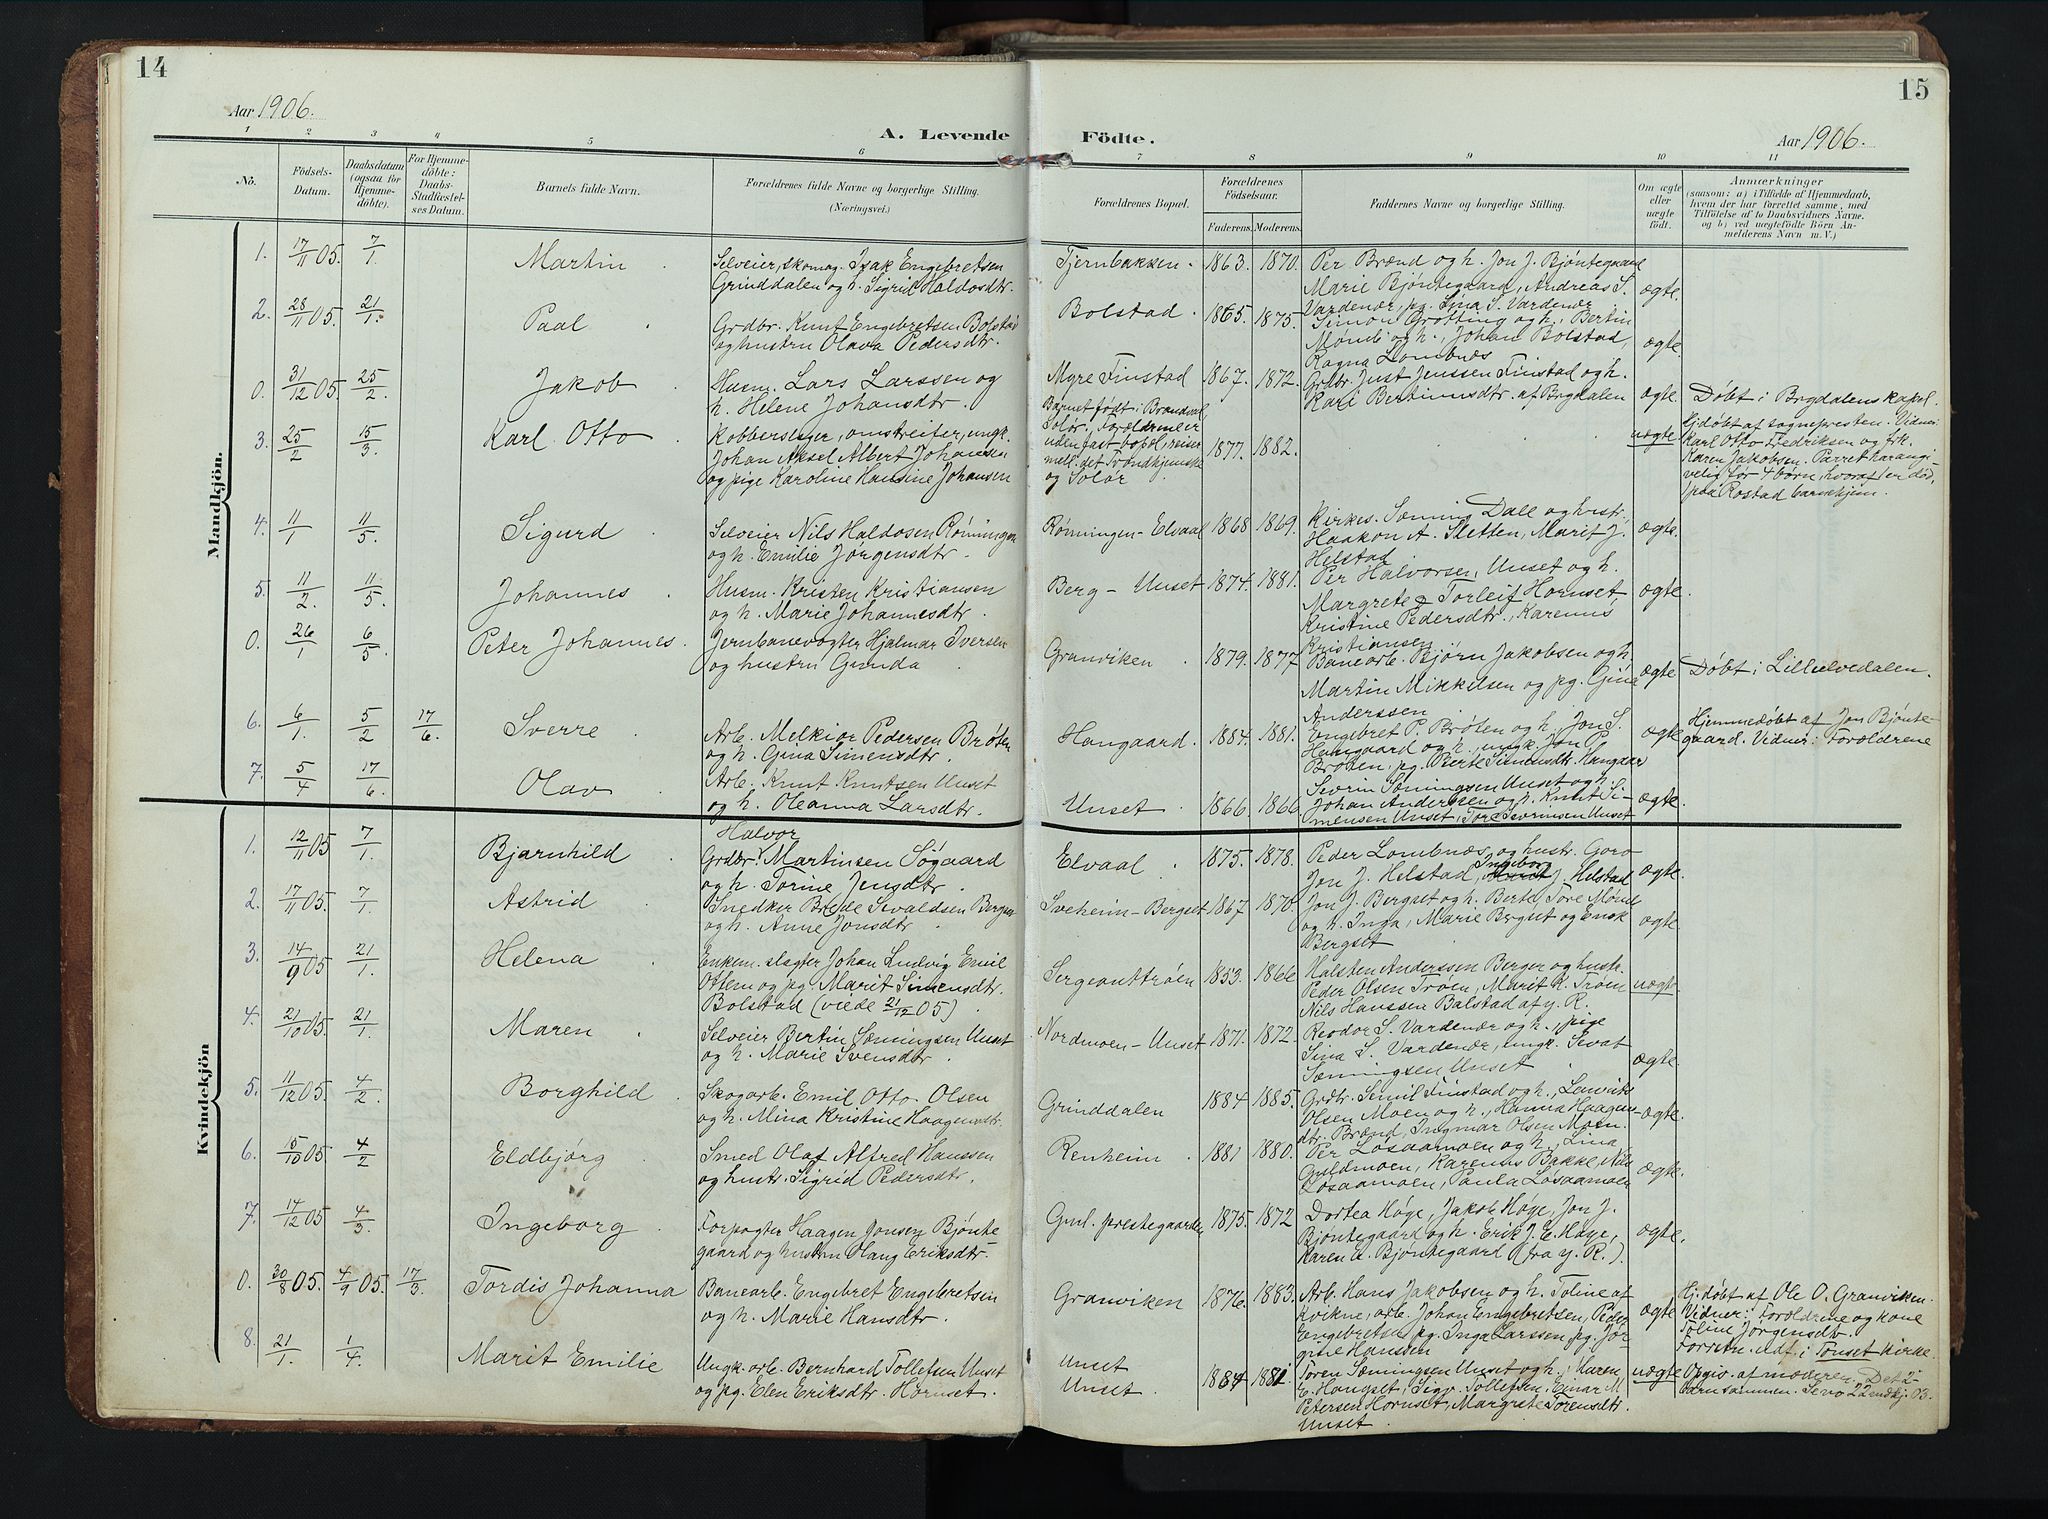 14
Aar 1906.
A. Levende
1 2 3 4 5 6
No.
Födsels-Datum.
Daabsdatum (ogsaa for Hjemme-döbte).
For Hjemme-döbte: Daabs-Stadfæstel-ses Datum.
Barnets fulde Navn.
Forældrenes fulde Navne og borgerlige Stilling.
(Næringsvei.)
Mandkjön.
1. 17/11 05. 7/1 Martin Selveier, skomag. Isak Engebretsen
Grinddalen og h. Sigrid Haldosdtr.
2. 28/11 05. 21/1. Paal Grdbr. Knut Engebretsen Bolstad
og hustru Olava Pedersdtr.
0. 31/12 05. 25/2. Jakob Husm. Lars Larssen og
h. Helene Johansdtr.
3. 25/2 15/3. Karl Otto Kobberslager, omstreifer, ungk.
Johan Aksel Albert Johansen
og pige Karoline Hansine Johansen
4. 11/1 11/5. Sigurd Selveier Nils Haldosen Rønningen
og h. Emilie Jørgensdtr.
5. 11/2. 11/5. Johannes Husm. Kristen Kristiansen
og h. Marie Johannesdtr.
0. 26/1 6/5. Peter Johannes. Jernbanevogter Hjalmar Iversen
og hustru Gunda
6. 6/1. 5/2 17/6. Sverre Arb. Melkior Pedersen Brøten
og h. Gina Simensdtr.
7. 5/4 17/6. Olav Arb. Knut Knutsen Unset
og h. Oleanna Larsdtr.
Kvindekjön
1. 12/11 05 7/1. Bjarnhild Halvor
Grdbr. Martinsen Søgaard
og h. Torine Jensdtr.
2. 17/11 05. 7/1. Astrid Snedker Brede Sevaldsen Bergset
og h. Anne Jonsdtr.
3. 14/9 05 21/1. Helena Enkem. slagter Johan Ludvig Emil
Ottem og pg. Marit Simensdtr.
Bolstad (viede 21/12 05)
4. 21/10 05. 21/1. Maren Selveier Bertin Sæmingsen Unset
og h. Marie Svensdtr.
5. 11/12 05. 4/2. Borghild Skogarb. Emil Otto Olsen
og h. Mina Kristine Haagensdtr.
6. 15/10 05. 4/2 Eldbjørg Smed Olaf Alfred Hanssen
og hustr. Sigrid Pedersdtr.
7. 17/12 05 4/3. Ingeborg Forpagter Haagen Jonsen Bjønte-
gaard og hustru Hang Eriksdtr.
0. 30/8 05. 4/9 05. 17/3. Tordis Johanna Banearb. Engebret Engebretsen
og h. Marie Hansdtr.
8. 21/1. 1/4. Marit Emilie Ungk. arb. Bernhard Tollefsen Unset
og pg. Elen Eriksdtr. Hornset.
15
Födte.
Aar 1906.
7 8 9 10 11
Forældrenes Bopæl.
Forældrenes Födselsaar.
Faderens. Moderens.
Faddernes Navne og borgerlige Stilling.
Om ægte eller uægte födt.
Anmærkninger
(saasom: a) i Tilfælde af Hjemmedaab,
hvem der har forrettet samme, med
Tilföielse af to Daabsvidners Navne.
og b) ved uægtefödte Börn An-
melderens Navn m. V.)
Tjernbakken. 1863. 1870. Per Brænd og h. Jon J. Bjøntegaard
Marie Bjøntegaard, Andreas S.
Vardenær, pg. Sina S. Vardenær ægte.
Bolstad. 1865. 1875. Simon Grøtting og h., Bertin
Møndi og h., Johan Bolstad,
Ragna Lombnæs ægte.
Myre Finstad 1867. 1872. Grdbr. Just Jenssen Finstad og h.
Kari Bertinusdtr. af Brydalen ægte. Døbt i Brydalens kapel.
Barnet født i Brandval
Solør. Forældrene er
uden fast bopæl, reiser
mell. det Trondhjemske
og Solør. 1877. 1882. uægte Hjdøbt af sognepresten. Vidner:
Karl Otto Fredriksen og frk.
Karen Jakobsen. Parret har angi-
velig før 4 børn, hvoraf 1 er død,
paa Rostad barnehjem.
Rønningen - Elvaal 1868 1869. Kirkes. Sæming Dall og hustr.,
Haakon A. Sletten, Marit J.
Helstad ægte.
Berg - Unset 1874. 1881. Per Halvorsen, Unset og h.
Margrete, Torleif Hornset
Kristine Pedersdtr., Karenus
Kristiansen ægte.
Granviken 1879. 1877 Banearb. Bjørn Jakobsen og h.
Martin Mikkelsen og pg. Gina
Anderssen ægte Døbt i Lilleelvedalen.
Haugaard. 1884. 1881. Engebret P. Brøten og h., Jon S.
Haugaard og h., ungk. Jon P.
Brøten, pg. Berte Simensdtr. Haugaar ægte Hjemmedøbt af Jon Bjønte-
gaard. Vidner: Forældrene
Unset 1866. 1866 Sevrin Sæmingsen Unset og h.
Johan Anderssen og h. Knut Si-
mensen Unset, Tore Sevrinsen Unset ægte.
Elvaal 1875. 1878. Peder Lombnæs, og hustr. Goro
Jon J. Helstad, Ingeborg J. Helstad ægte.
Sveheim - Bergset 1867 1870. Jon J. Bergset og h. Berte, Tore Mønd
og h. Inga, Marie Bergset og Erik
Bergset ægte.
Sergeanttrøen 1853. 1866 Halsten Anderssen Berger og hustr.
Peder Olsen Trøen, Marit K. Trøen
Nils Hanssen Balstad af y. R. uægte
Nordmoen - Unset 1871. 1872. Reodor S. Vardenær og h., pige
Sina S. Vardenær, ungk. Sevat
Sæmingsen Unset ægte.
Grinddalen 1884 1885. Grdbr. Semil Finstad og h., Lauritz
Olsen Moen og h., Hanna Haagens-
dtr. Brænd, Ingmar Olsen Moen. ægte.
Renheim 1881 1880. Per Løsaamoen og h., Lina
Guldmoen, Karenus Bakke, Nils
Løsaamoen, Paula Løsaamoen ægte.
Gml. prestegaarden 1875. 1872 Dortea Høye, Jakob Høye, Jon J.
Bjøntegaard og h. Erik J. E. Høye,
Karen A. Bjøntegaard (fra y. R.). ægte.
Granviken 1876. 1883. Arb. Hans Jakobsen og h. Toline af
Kvikne, arb. Johan Engebretsen, Peder
Engebretsen, pg. Inga Larssen, pg. Jør-
gine Hanssen ægte Hj.døbt af Ole O. Granviken.
Vidner: Forældrene og kone
Toline Jørgensdtr.
Forretn. udf. i Tønset kirke.
Unset
Unset. 1884 1881. Toren Sæmingsen Unset og h., Maren
E. Haugset, Sigv. Tollefsen, Einar M
Petersen Hornset, Margrete Torensdtr.
Unset uægte Opgiv. af moderen. Det 2-
barn sammen. Se no 22 mdkj. 03.